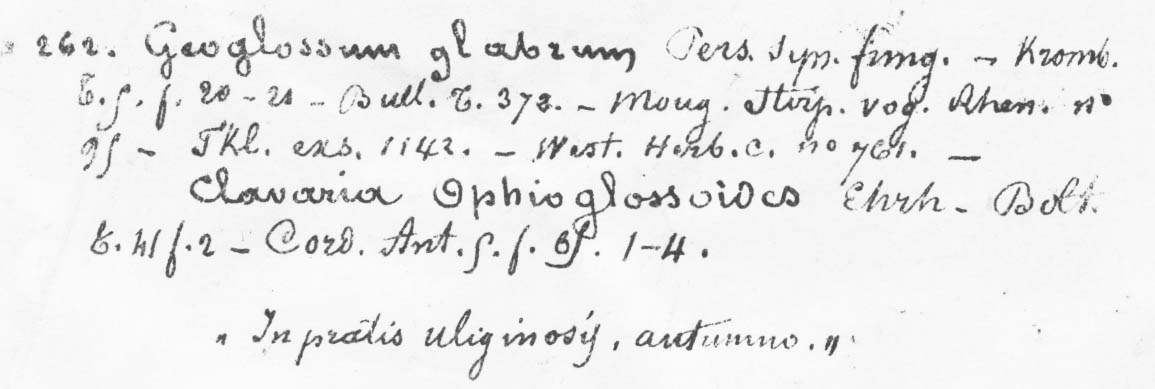 262. Geoglossum glabrum Pers. Syn. fung. - Kromb.
t. 5. f. 20-21 - Bull. t. 372. - Moug. Stirp. vog. Rhen. n°
95 - Fkl. exs. 1142. - West. Herb. c. n° 761. -
Clavaria Ophioglossoides Ehrh - Bolt.
t. 111 f. 2 - Cord. Ant. 5. f. 1-4.
„ In pratis uliginosis, autumno. „